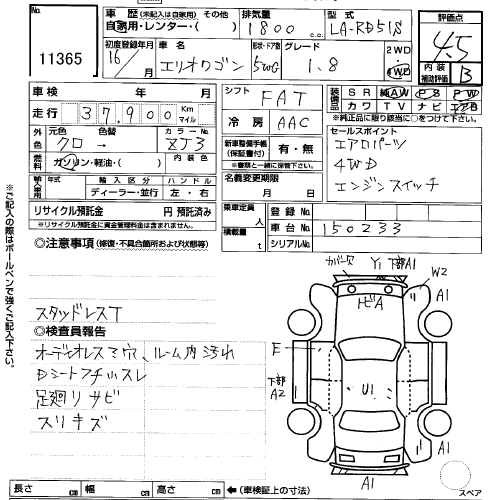 11365
車歴 (未記入は自家用) その他
自家用・レンター・( )
排気量
1800 c.c.
型式
LA-RD51S
評価点
4.5
内装補助評価 B
初度登録年月
16年 月
車名
エリオワゴン
形状・ドア数
5WG
グレード
1.8
2WD・4WD
車検 年 月
走行 37,900 Km マイル
シフト
FAT
装備品 SR AW PS PW
カワ TV ナビ エアB
※純正品に限り該当に○をつけて下さい。
外色 元色 色替
クロ →
カラーNo.
ZJ3
冷房 AAC
セールスポイント
エアロパーツ
4WD
エンジンスイッチ
燃料 ガソリン・軽油・( )
内装色
新車整備手帳(保証書付) 有・無
※書類と一緒に保管下さい。
輸入車用 年式 輸入区分 ハンドル
ディーラー・並行 左・右
名義変更期限
月 日
リサイクル預託金 円 預託済み
※リサイクル預託金に資金管理料金は含まれません。
乗車定員 人
積載量 t
登録No.
車台No. 150233
シリアルNo.
◎注意事項 (修復・不具合箇所および状態等)
スタッドレスT
◎検査員報告
オーディオレス穴、ルーム内汚れ
Dシートアチハスレ
足廻リサビ
スリキズ
カバー欠 Y1 下部A1
W2
A1
トビA
E
下部A2
U1
A1
A1
スペア
長さ cm 幅 cm 高さ cm ←(車検証上の寸法)
※ご記入の際はボールペンで強くご記入下さい。